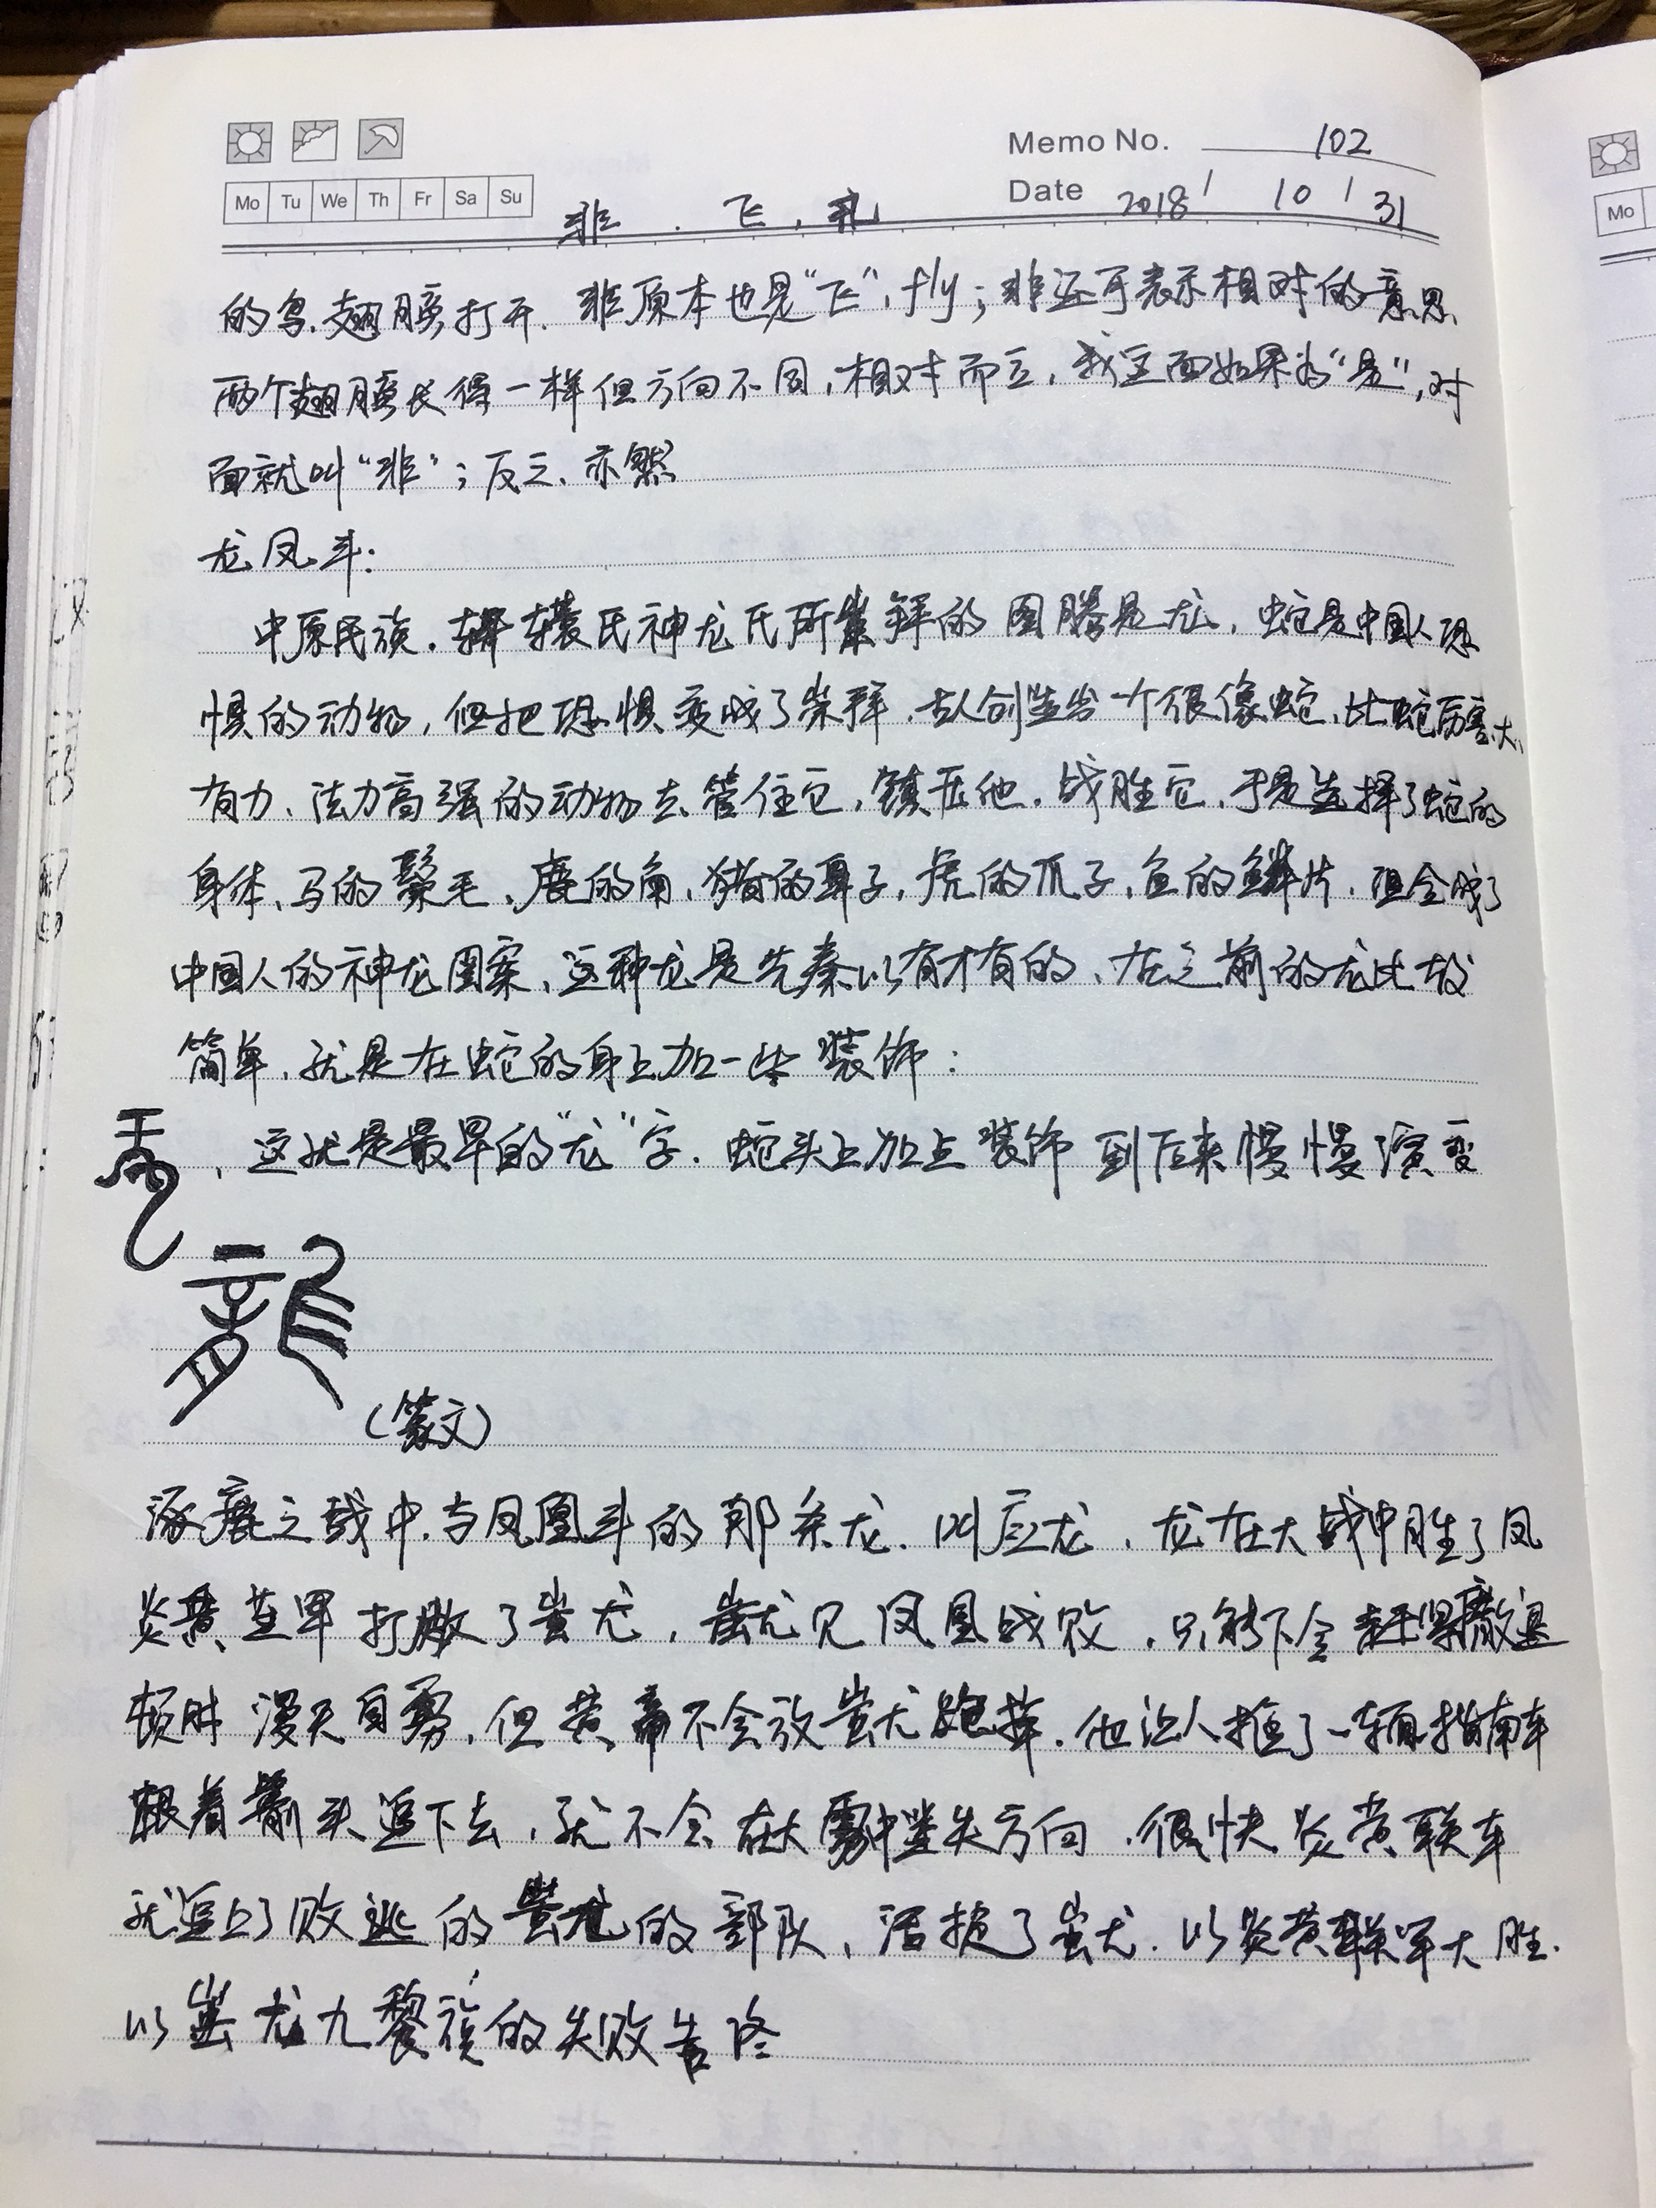 Memo No. 102
Mo Tu We Th Fr Sa Su
Date 2018 / 10 / 31
非 . 飞 , 孔
的鸟.翅膀打开. 非原本也是“飞”, fly; 非还可表示相对的意思
两个翅膀长得一样但方向不同,相对而立,我这面如果为“是”,对
面就叫“非”;反之、亦然
龙凤斗:
中原民族.轩辕氏神龙氏所崇拜的图腾是龙,蛇是中国人恐
惧的动物,但把恐惧变成了崇拜.古人创造出一个很像蛇、比蛇厉害、大、
有力、法力高强的动物去管住它,镇压他.战胜它.于是选择了蛇的
身体、马的鬃毛、鹿的角、猪的鼻子,虎的爪子、鱼的鳞片.组合成了
中国人的神龙图案、这种龙是先秦以有才有的、在之前的龙比较
简单.就是在蛇的身上加一些装饰:
,这就是最早的“龙”字.蛇头上加点装饰到后来慢慢演变
龍
(篆文)
涿鹿之战中.与凤凰斗的那条龙.叫应龙,龙在大战中胜了凤
炎黄联军打败了蚩尤,蚩尤见凤凰战败.只能下令赶紧撤退
顿时漫天白雾.但黄帝不会放蚩尤跑掉.他让人推了一辆指南车
跟着箭头追下去,就不会在大雾中迷失方向.很快炎黄联车
就追上了败逃的蚩尤的部队、活捉了蚩尤.以炎黄联军大胜.
以蚩尤九黎族的失败告终
Mo